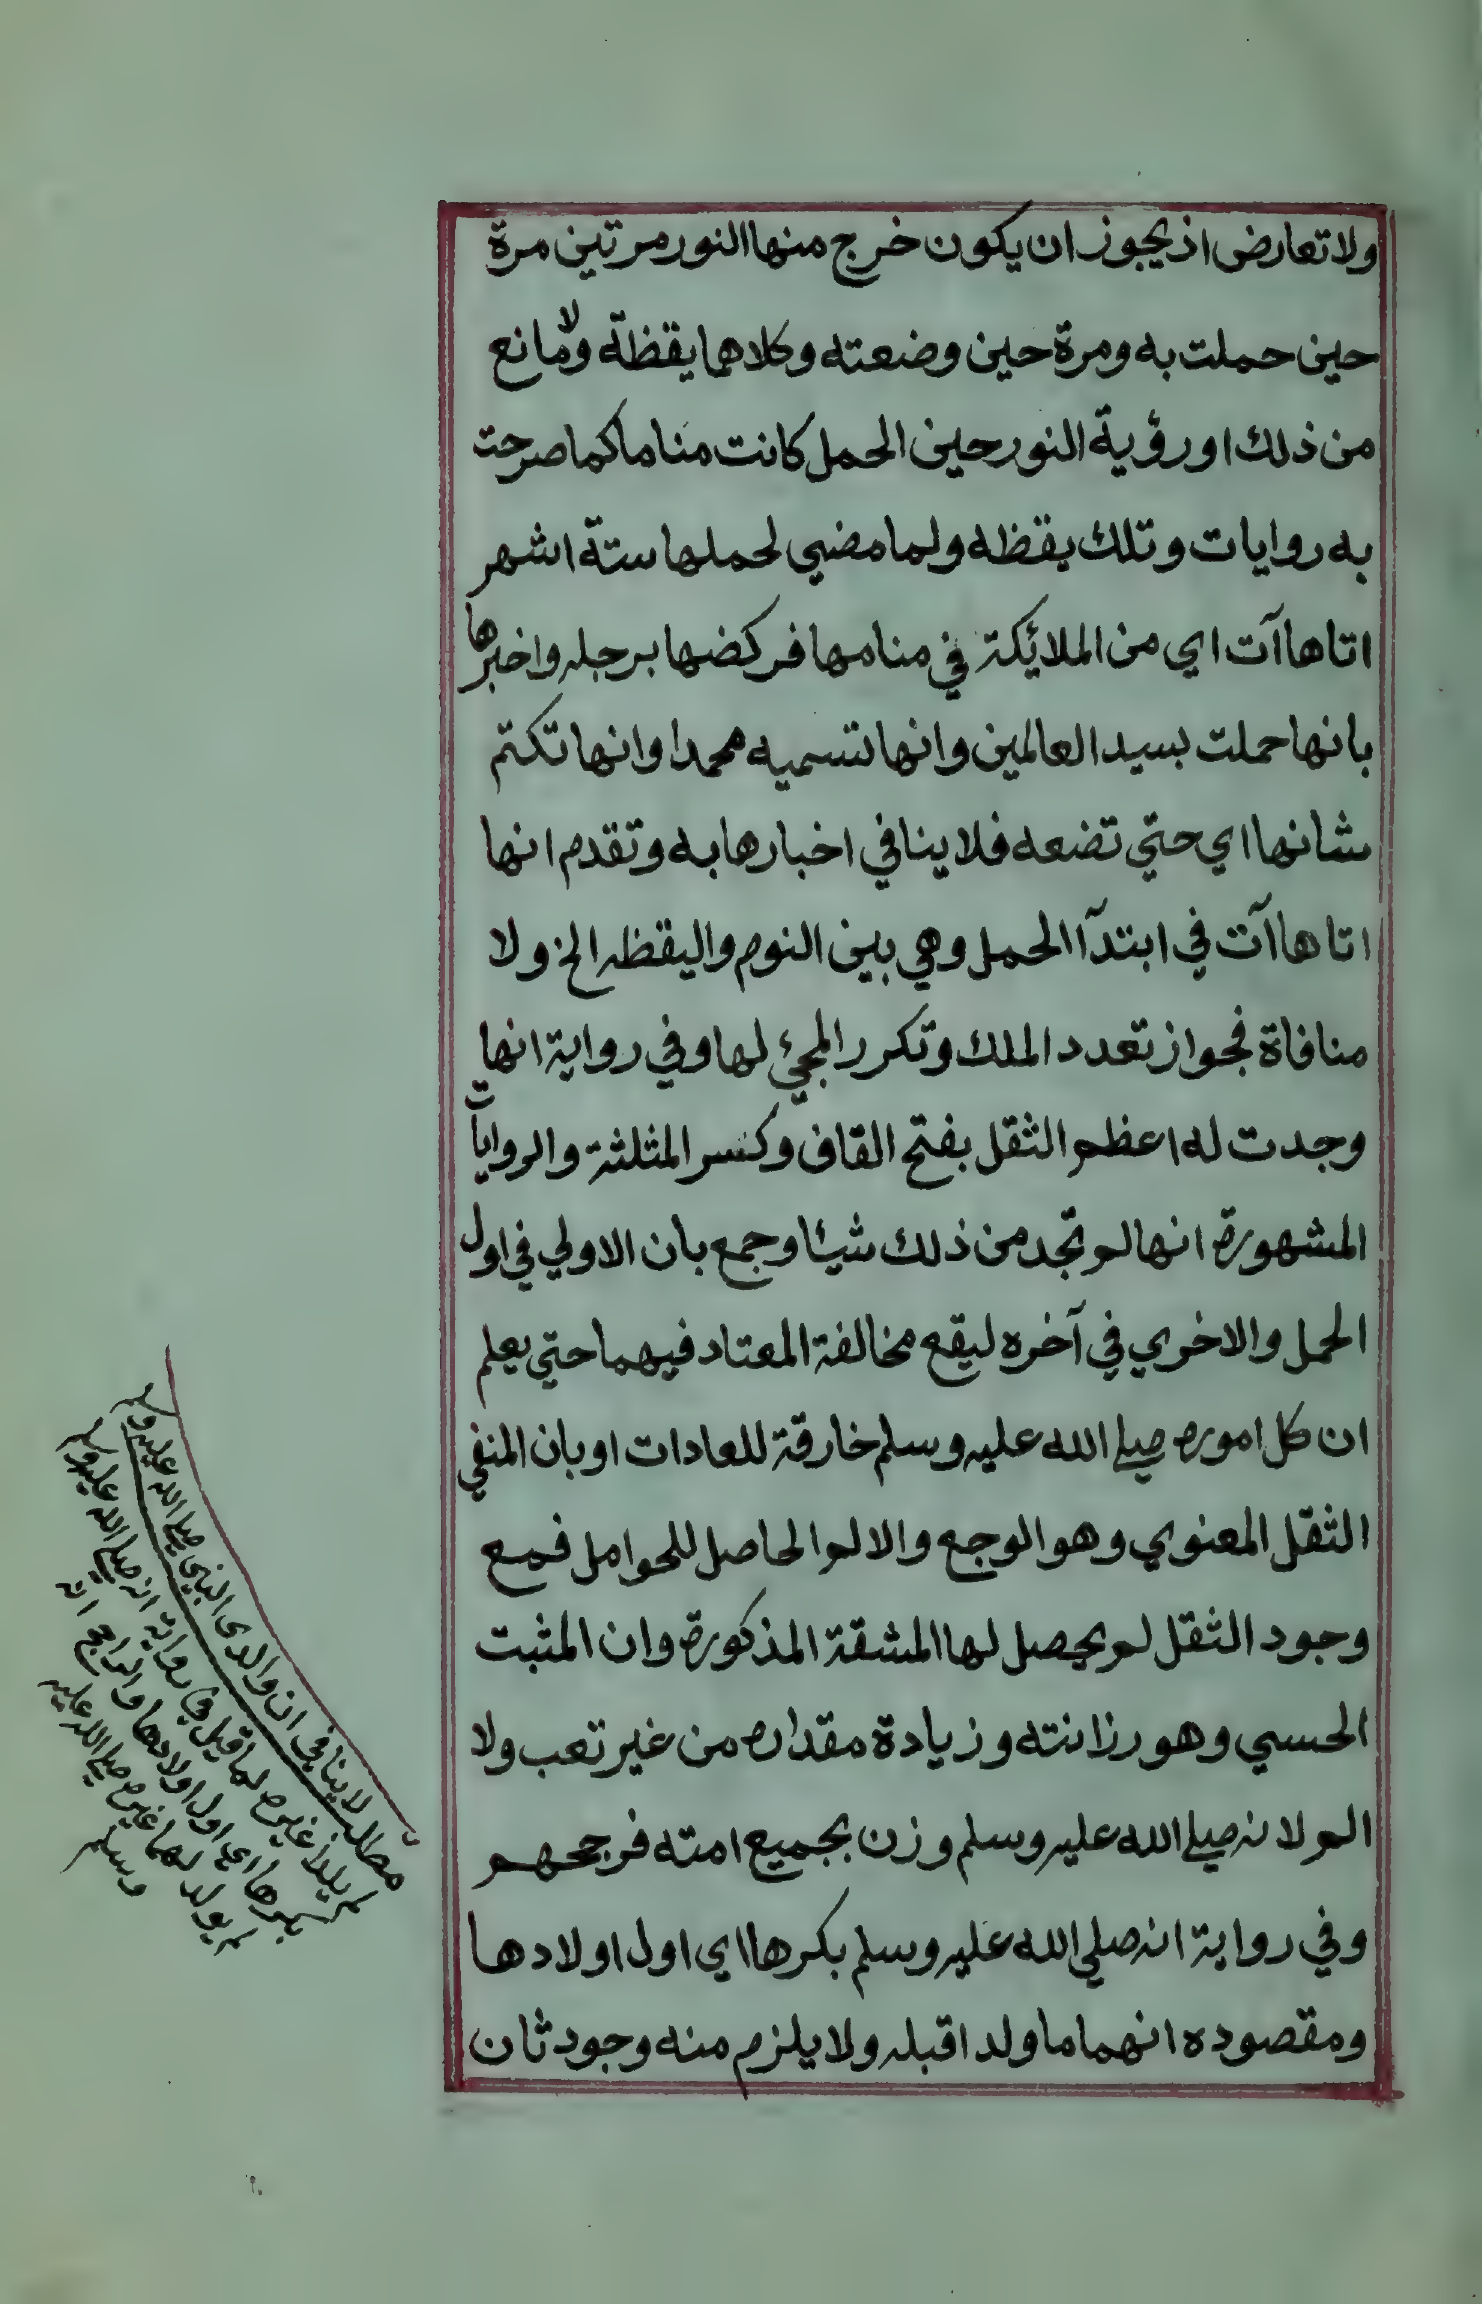 ولا تعارض اذ يجوز ان يكون خرج منها النور مرتين مرة
حين حملت به ومرة حين وضعته وكلاهما يقظة ولا مانع
من ذلك او رؤية النور حين الحمل كانت مناما كما صرحت
به روايات وتلك يقظه ولما مضي لحملها ستة اشهر
اتاها آت اي من الملائكة في منامها فركضها برجله واخبرها
بانها حملت بسيد العالمين وانها تسميه محمدا وانها تكتم
شانها اي حتي تضعه فلا ينافي اخبارها به وتقدم انها
اتاها آت في ابتدآ الحمل وهي بين النوم واليقظه الخ ولا
منافاة فجواز تعدد الملك وتكرر المجئ لها وفي رواية انها
وجدت له اعظم الثقل بفتح القاف وكسر المثلثة والروايات
المشهورة انها لم تجد من ذلك شيئا وجمع بان الاولي في اول
الحمل والاخري في آخره ليقع مخالفة المعتاد فيهما حتي يعلم
ان كل اموره صلي الله عليه وسلم خارقة للعادات او بان المنفي
الثقل المعنوي وهو الوجع والالم الحاصل للحوامل فمع
وجود الثقل لم يحصل لها المشقة المذكورة وان المثبت
الحسي وهو رزانته وزيادة مقداره من غير تعب ولا
الم لانه صلي الله عليه وسلم وزن بجميع امته فرجحهم
وفي رواية انه صلي الله عليه وسلم بكرها اي اول اولادها
ومقصوده انهما ما ولدا قبله ولا يلزم منه وجود ثان
مطلب لا ينافي ان والدى النبي صلي الله عليه وسلم
لم يلدا غيره لما قيل في رواية انه صلي الله عليه وسلم
بكرها اي اول اولادها والراجح انه
لم يولد لهما غيره صلي الله عليه
وسلم